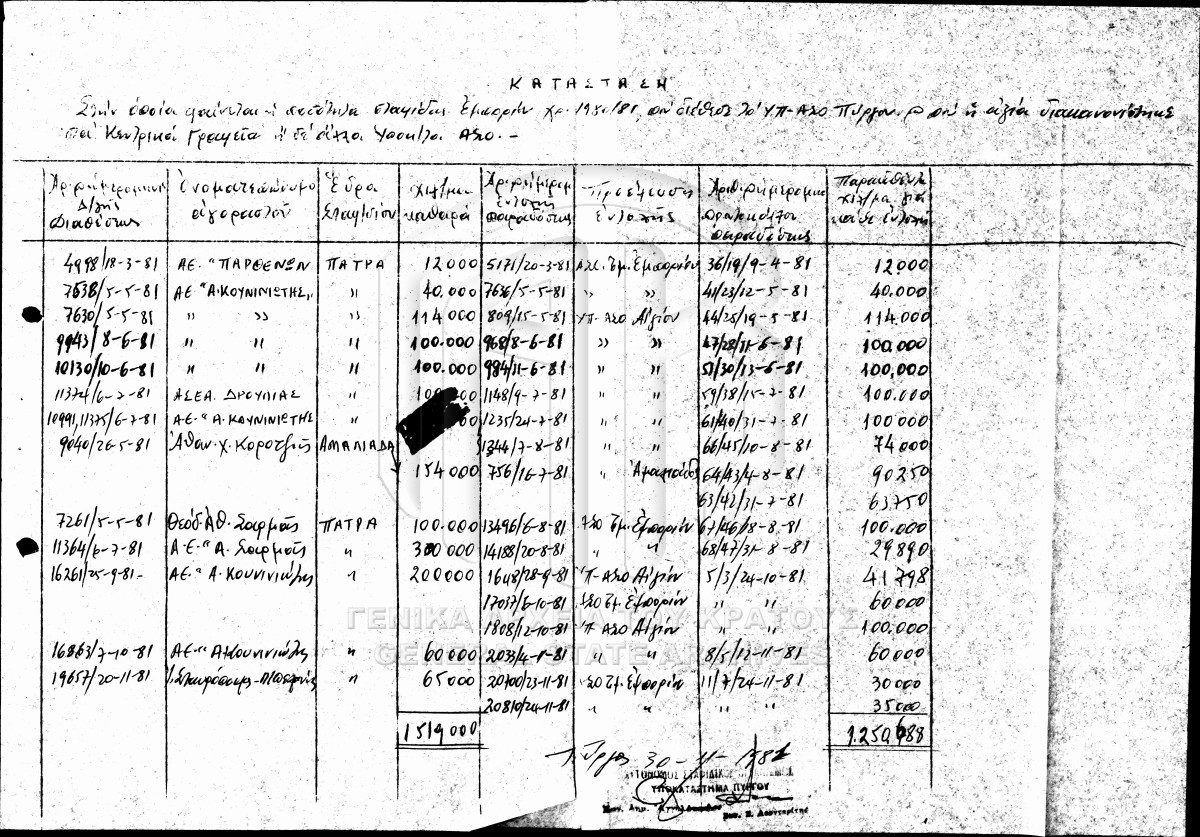 ΚΑΤΑΣΤΑΣΗ
Στήν ὁποία φαίνεται ἡ ποσότητα σταφίδας Ἐμπορίου χρ. 1980/81, πού διέθεσε τό ΥΠ-ΑΣΟ Πύργου πού ἡ ἀξία
στά Κεντρικά Γραφεῖα ἤ σέ ἄλλα Υποκ/τα ΑΣΟ.-
Αρ. & ἡμερομηνία Δ/γῆς Διαθέσεως | Ὀνοματεπώνυμο ἀγοραστοῦ | Ἕδρα | Χιλ/μα καθαρά | Αρ. & ἡμερομ. ἐντολῆς παραδόσεως | Προέλευση ἐντολῆς | Αριθ. & ἡμερομηνία πρωτοκόλλου παραδόσεως | Παραδοθέντα χιλ/μα γιά κάθε ἐντολή
4998/18-3-81 ΑΕ. "ΠΑΡΘΕΝΩΝ ΠΑΤΡΑ 12000 5171/20-3-81 Τμ. Ἐμπορίου 36/19/9-4-81 12000
7638/5-5-81 ΑΕ "Α.ΚΟΥΝΙΝΙΩΤΗΣ" " 40.000 7636/5-5-81 " " 41/23/12-5-81 40.000
7630/5-5-81 " " " 114000 809/15-5-81 ΥΠ-ΑΣΟ Αἰγίου 44/25/19-5-81 114.000
9943/8-6-81 " " " 100.000 968/8-6-81 " " 47/28/11-6-81 100.000
10130/10-6-81 " " " 100.000 984/11-6-81 " " 51/30/13-6-81 100,000
11374/6-7-81 ΑΣΕΑ. " 1148/9-7-81 " " 59/38/15-7-81 100.000
10991,11375/6-7-81 ΑΕ-"Α.ΚΟΥΝΙΝΙΩΤΗΣ " 1235/24-7-81 " " 61/40/31-7-81 100000
9040/26-5-81 Ἀθαν. χ. Κοροτζῆς ΑΜΑΛΙΑΔΑ 1344/7-8-81 " " 66/45/10-8-81 74000
154000 756/16-7-81 " Ἀμαλιάδος 64/43/4-8-81 90250
63/42/31-7-81 63750
7261/5-5-81 Θεόδ. Ἀθ. ΠΑΤΡΑ 100.000 13496/6-8-81 ΑΣΟ Τμ. Ἐμπορίου 67/46/8-8-81 100.000
11364/6-7-81 Α.Ε. "Α. " 300000 14188/20-8-81 " " 68/47/31-8-81 29890
16261/25-9-81- ΑΕ." Α. Κουνινιώτης " 200000 1648/28-9-81 Υπ-ΑΣΟ Αἰγίου 5/3/24-10-81 41798
17037/6-10-81 ΑΣΟ Τμ. Ἐμπορίου " " 60000
1808/12-10-81 Υπ ΑΣΟ Αἰγίου " " 100.000
16863/7-10-81 ΑΕ-" Α.Κουνινιώτης " 60000 2033/4-11-81 " " 8/5/12-11-81 60000
19657/20-11-81 " 65000 20700/23-11-81 ΑΣΟ Τμ. Ἐμπορίου 11/7/24-11-81 30000
20810/24-11-81 " " " " 35000
1519000 1.250.688
Πύργος 30-11-1981
ΑΥΤΟΝΟΜΟΣ ΣΤΑΦΙΔΙΚΟΣ ΟΡΓΑΝΙΣΜΟΣ
ΥΠΟΚΑΤΑΣΤΗΜΑ ΠΥΡΓΟΥ
ΓΕΝΙΚΑ ΑΡΧΕΙΑ ΤΟΥ ΚΡΑΤΟΥΣ
GENERAL STATE ARCHIVES